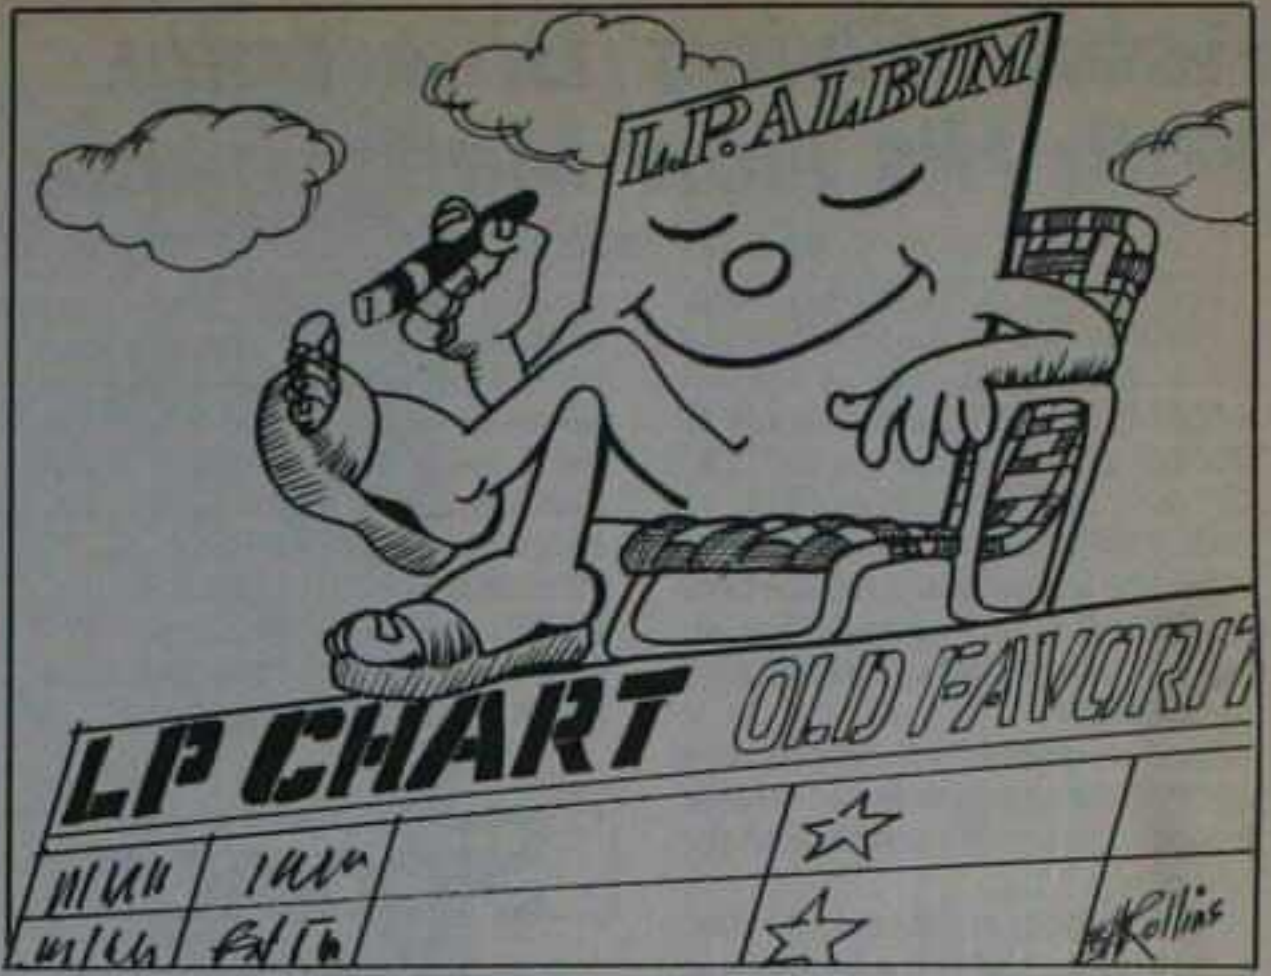 L.P. ALBUM
LP CHART OLD FAVORIT
Rollins